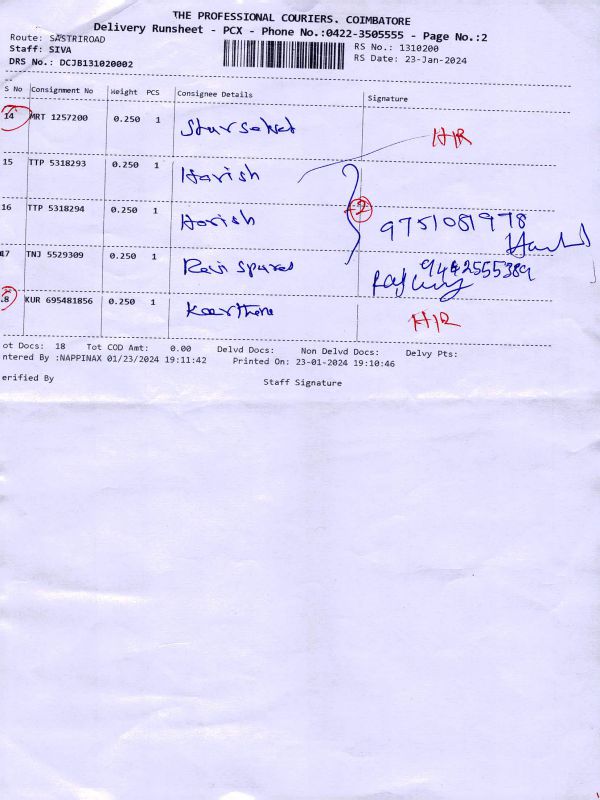 THE PROFESSIONAL COURIERS. COIMBATORE
Delivery Runsheet - PCX - Phone No.:0422-3505555 - Page No.:2
Route: SASTRIROAD
RS No.: 1310200
Staff: SIVA
RS Date: 23-Jan-2024
DRS No.: DCJB131020002
S No Consignment No Weight PCS Consignee Details Signature
14 MRT 1257200 0.250 1 H/R
15 TTP 5318293 0.250 1 Harish
16 TTP 5318294 0.250 1 Harish 2 9751081978
17 TNJ 5529309 0.250 1 Ravi spares 9442555389
8 KUR 695481856 0.250 1 H/R
ot Docs: 18 Tot COD Amt: 0.00 Delvd Docs: Non Delvd Docs: Delvy Pts:
ntered By :NAPPINAX 01/23/2024 19:11:42 Printed On: 23-01-2024 19:10:46
erified By Staff Signature